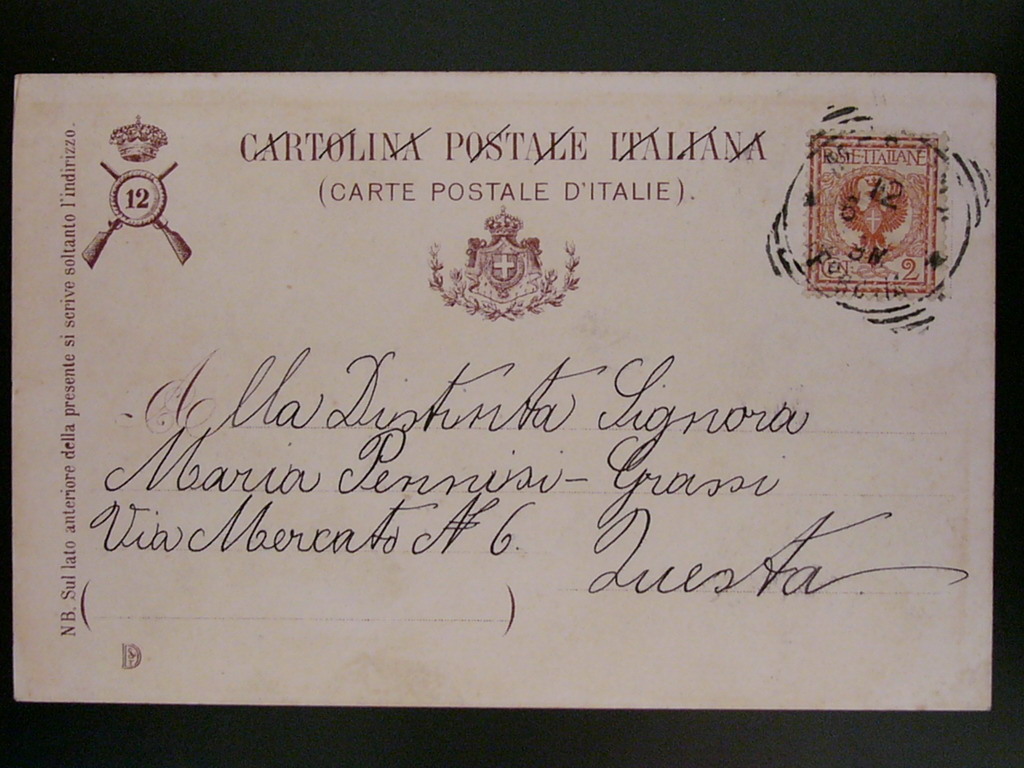 CARTOLINA POSTALE ITALIANA
(CARTE POSTALE D'ITALIE).
12
POSTE ITALIANE
2
12
9 M
NB. Sul lato anteriore della presente si scrive soltanto l'indirizzo.
Alla Distinta Signora
Maria Pennisi-Grassi
Via Mercato N 6.
Questa
(                    )